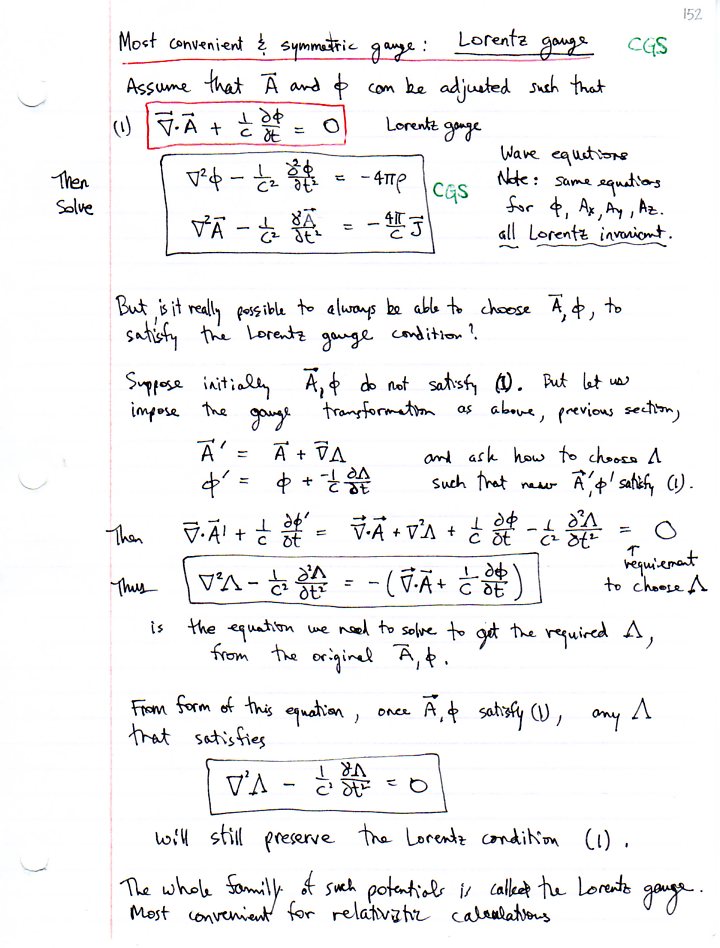 152
Most convenient & symmetric gauge: Lorentz gauge CGS
Assume that A⃗ and ϕ can be adjusted such that
(1) ∇⃗·A⃗ + 1/c ∂ϕ/∂t = 0 Lorentz gauge
Then Solve
∇²ϕ − 1/c² ∂²ϕ/∂t² = −4πρ
∇²A⃗ − 1/c² ∂²A⃗/∂t² = −4π/c J⃗
CGS
Wave equations
Note: same equations
for ϕ, Ax, Ay, Az.
all Lorentz invariant.
But, is it really possible to always be able to choose A⃗, ϕ, to
satisfy the Lorentz gauge condition?
Suppose initially A⃗, ϕ do not satisfy (1). But let us
impose the gauge transformation as above, previous section,
A⃗′ = A⃗ + ∇⃗Λ and ask how to choose Λ
ϕ′ = ϕ + −1/c ∂Λ/∂t such that new A⃗′, ϕ′ satisfy (1).
Then ∇⃗·A⃗′ + 1/c ∂ϕ′/∂t = ∇⃗·A⃗ + ∇²Λ + 1/c ∂ϕ/∂t − 1/c² ∂²Λ/∂t² = 0
↑
requirement
to choose Λ
Thus ∇²Λ − 1/c² ∂²Λ/∂t² = −(∇⃗·A⃗ + 1/c ∂ϕ/∂t)
is the equation we need to solve to get the required Λ,
from the original A⃗, ϕ.
From form of this equation, once A⃗, ϕ satisfy (1), any Λ
that satisfies
∇²Λ − 1/c² ∂²Λ/∂t² = 0
will still preserve the Lorentz condition (1).
The whole family of such potentials is called the Lorentz gauge.
Most convenient for relativistic calculations